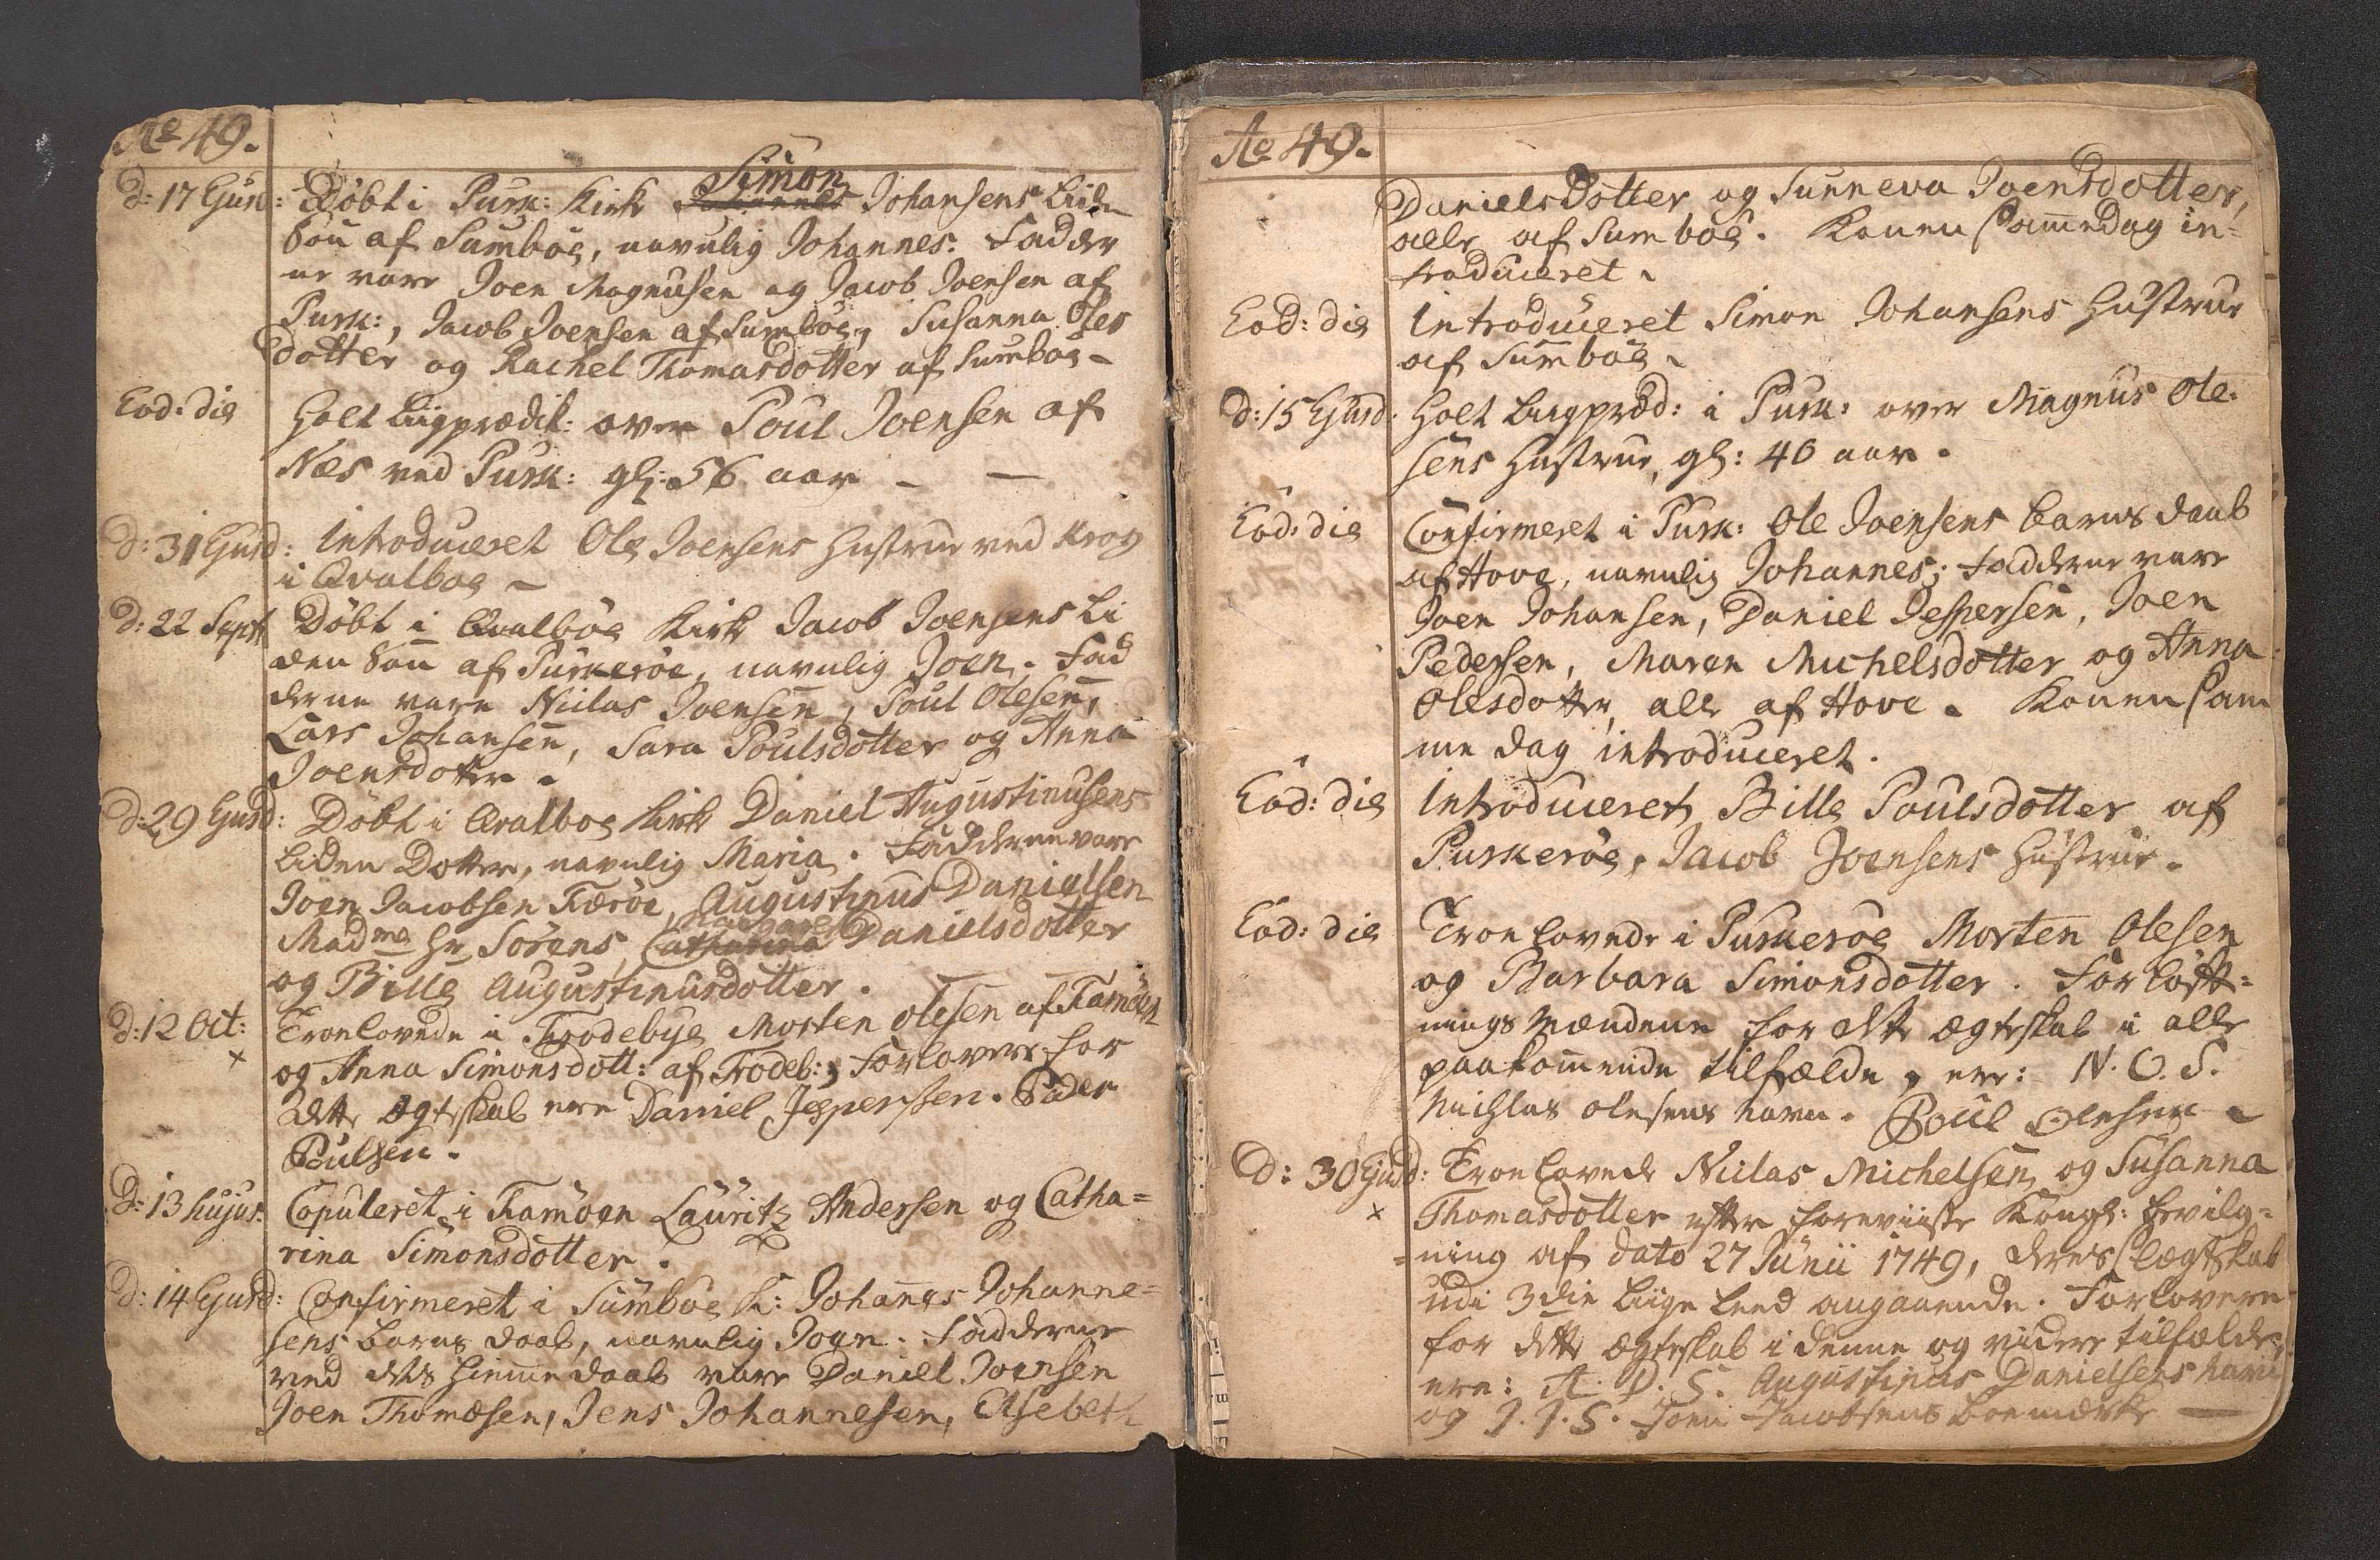 Ao 49.
d: 17 Ejusd: Döbt i Pursk: Kirke Simon Johannes Johansens liden
Sön af Sumböe, navnlig Johannes. Fadder
ne vare Joen Magnusen og Jacob Joensen af
Pursk:, Jacob Joensen af Sumböe, Susanna Oles
dotter og Rachel Thomasdotter af Sumboe -
Eod: die Holt Liigprædik: over Poul Joensen af
Næs ved Pursk: gl: 56 aar -
d: 31 Ejusd: Introduceret Ole Joensens Hustrue ved Krog
i Qvalboe -
d: 22 Sept Döbt i Qvalböe Kirke Jacob Joensens li
den Sön af Purkeröe, navnlig Joen. Fad
derne vare Niclas Joensen, Poul Olesen,
Lars Johansen, Sara Poulsdotter og Anna
Joensdotter.
d: 29 Ejusd: Döbt i Qvalboe Kirke Daniel Augustinusens
liden Dotter, navnlig Maria. Fadderne vare
Joen Jacobsen Færöe, Augustinus Danielsen
Madme Hr Sörens, Catharina Danielsdotter
og Bille Augustinusdotter.
d: 12 Oct: Trolovede i Frodebye Morten Olesen af Famöen
× og Anna Simonsdott: af Frodeb:, Forlovere for
dette Ægteskab ere Daniel Jespersen. Peder
Poulsen.
d: 13 hujus. Copuleret i Famöen Lauritz Andersen og Catha=
rina Simonsdotter.
d: 14 Ejusd: Confirmeret i Sumboe K: Johanes Johanne=
sens barns daab, navnlig Joen. Fadderne
ved dets hiemme daab vare Daniel Joensen
Joen Thomesen, Jens Johannesen, Elsebeth
Ao 49.
DanielsDotter og Sunneva Joensdotter,
alle af Sumboe. Konen samedag in=
troduceret.
Eod: die Introduceret Simon Johansens Hustrue
af Sumböe.
d: 15 Ejusd. Holt Liigpræd: i Pursk: over Magnus Ole.
sens Hustrue, gl: 40 aar.
Eod: die Confirmeret i Pursk: Ole Joensens barns daab
af Hove, navnlig Johannes; Fadderne vare
Joen Johansen, Daniel Jespersen, Joen
Pedersen, Maren Michelsdotter og Anna
Olesdotter, alle af Hove. Konen sam
me dag introduceret.
Eod: die Introduceret Bille Poulsdotter af
Purskeröe, Jacob Joensens Hustrue.
Eod: die Trolovede i Purskeröe Morten Olesen
og Barbara Simonsdotter. Forlöft=
nings Mændene for dette Ægteskab i alle
paakommende tilfælde, ere: N. O. S.
Nichlas Olesens navn. Poul Olesen
d: 30 Ejusd: Trolovede Niclas Michelsen og Susanna
× Thomasdotter efter foreviiste Kongl: bevilg=
=ning af dato 27 Junii 1749, deres slægtskab
udi 3die liige leed angaaende. Forlovere
for dette Ægteskab i denne og videre tilfælde,
ere: A. D. S. Augustinus Danielsens navn
og J. J. S. Joen Jacobsens boemærke